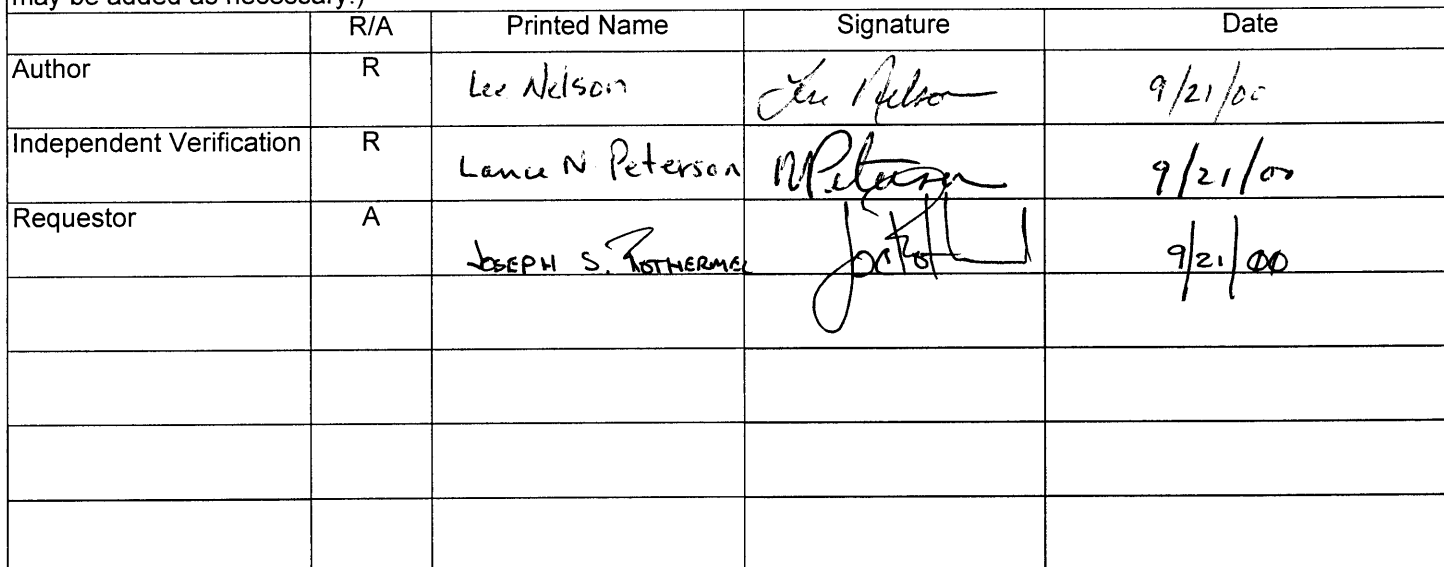 may be added as necessary.)
R/A Printed Name Signature Date
Author R Lee Nelson Lee Nelson 9/21/00
Independent Verification R Lance N Peterson NPeterson 9/21/00
Requestor A JOSEPH S. ROTHERMEL 9/21/00